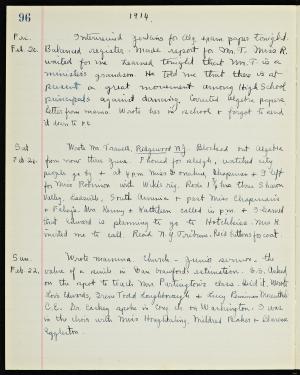 96
1914.
Fri. Interviewed Jenkins for Alg. exam paper tonight.
Feb. 20. Balanced register. Made report for Mr. T. Miss R.
waited for me. Learned tonight that Mr. T. is a
minister's grandson. He told me that there is at
present a great movement among High School
principals against dancing. Corrected algebra papers.
Letter from mama. Wrote her in school & forgot to send
it down to P.O.
Sat. Wrote Mr. Tassell, Ridgewood N.J. Blocked out algebra
Feb. 21. from now thru June. Phoned for sleigh, watched city
people go by & at 4 P.M. Miss Chapman & I left
for Miss Robinson with rig. Rode thru Sharon
Valley, South Amenia & past Miss Chapman's
Mrs. Kenny & Kathleen called in P.M. & I learned
that Edward is planning to go to Hotchkiss. Mrs. K.
invited me to call. Read N.Y. Tribune. Red buttons for coat
Sun. Wrote mamma. Church - sermon - the
Feb. 22. value of a smile in Dan Crawford's estimation. S.S. Asked
on the spot to teach Miss Partington's class. Did it. Wrote
Lois Edwards, Irene Todd Loughborough & Lucy
C.E. Dr. Carley spoke in Cong. ch. on Washington. I was
in the choir with Miss Mildred Baker & Clarence
Eggleston.